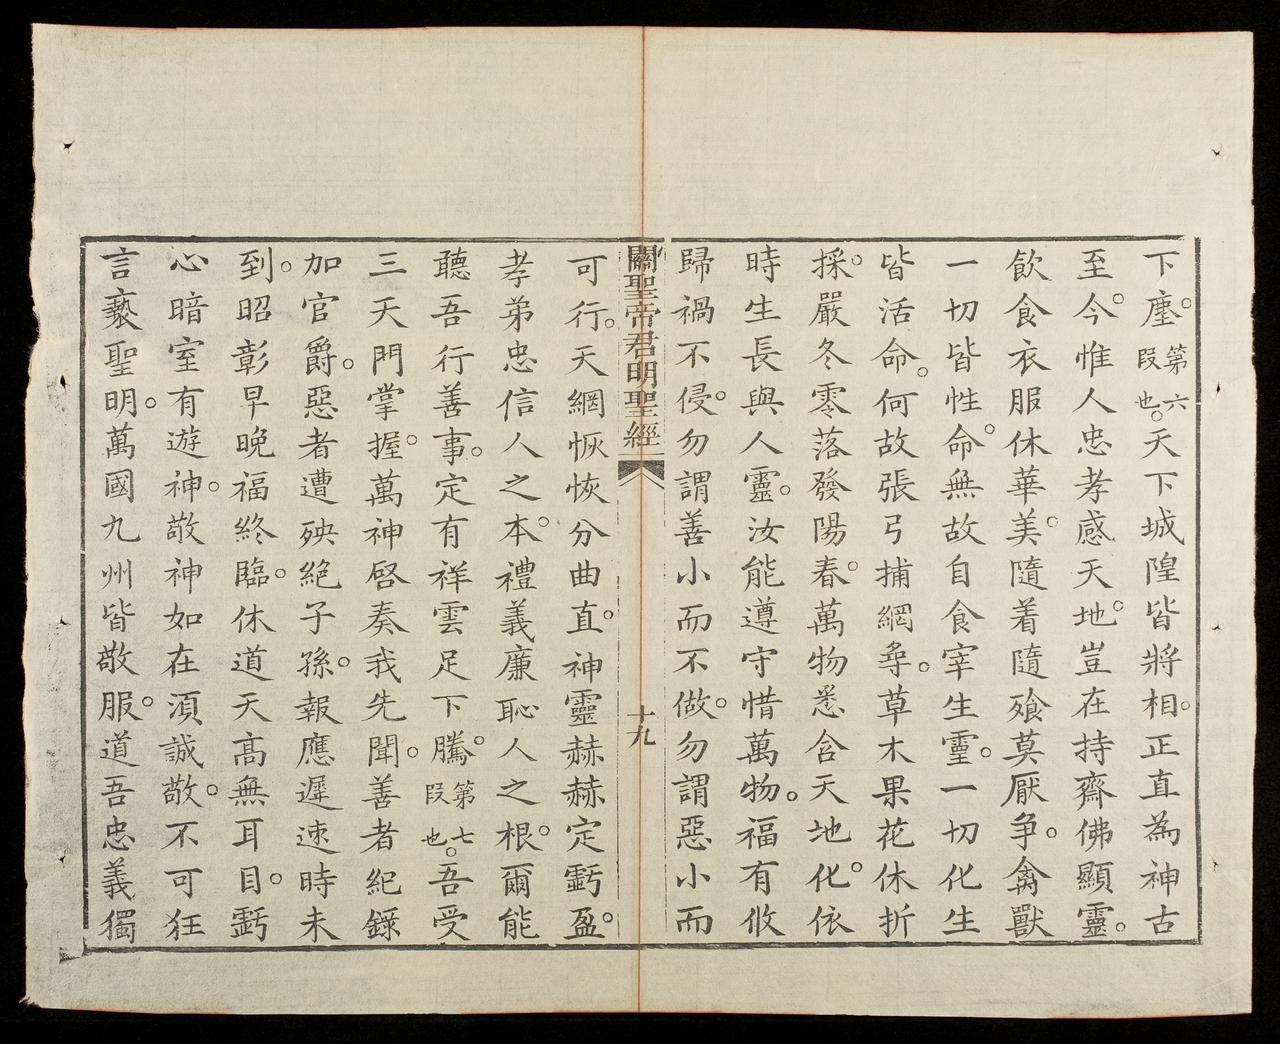 下塵。第六段也。天下城隍皆將相。正直為神古
至今。惟人忠孝感天地。豈在持齋佛顯靈。
飲食衣服休華美。隨着隨飱莫厭争。禽獸
一切皆性命。無故自食宰生靈。一切化生
皆活命。何故張弓捕網尋。草木果花休折
採。嚴冬零落發陽春。萬物悉含天地化。依
時生長與人靈。汝能遵守惜萬物。福有攸
歸禍不侵。勿謂善小而不做。勿謂惡小而
關聖帝君明聖經
十九
可行。天網恢恢分曲直。神靈赫赫定虧盈。
孝弟忠信人之本。禮義廉恥人之根。爾能
聽吾行善事。定有祥雲足下騰。第七段也。吾受
三天門掌握。萬神啓奏我先聞。善者紀錄
加官爵。惡者遭殃絕子孫。報應遲速時未
到。昭彰早晚福終臨。休道天高無耳目。虧
心暗室有遊神。敬神如在須誠敬。不可狂
言褻聖明。萬國九州皆敬服。道吾忠義獨